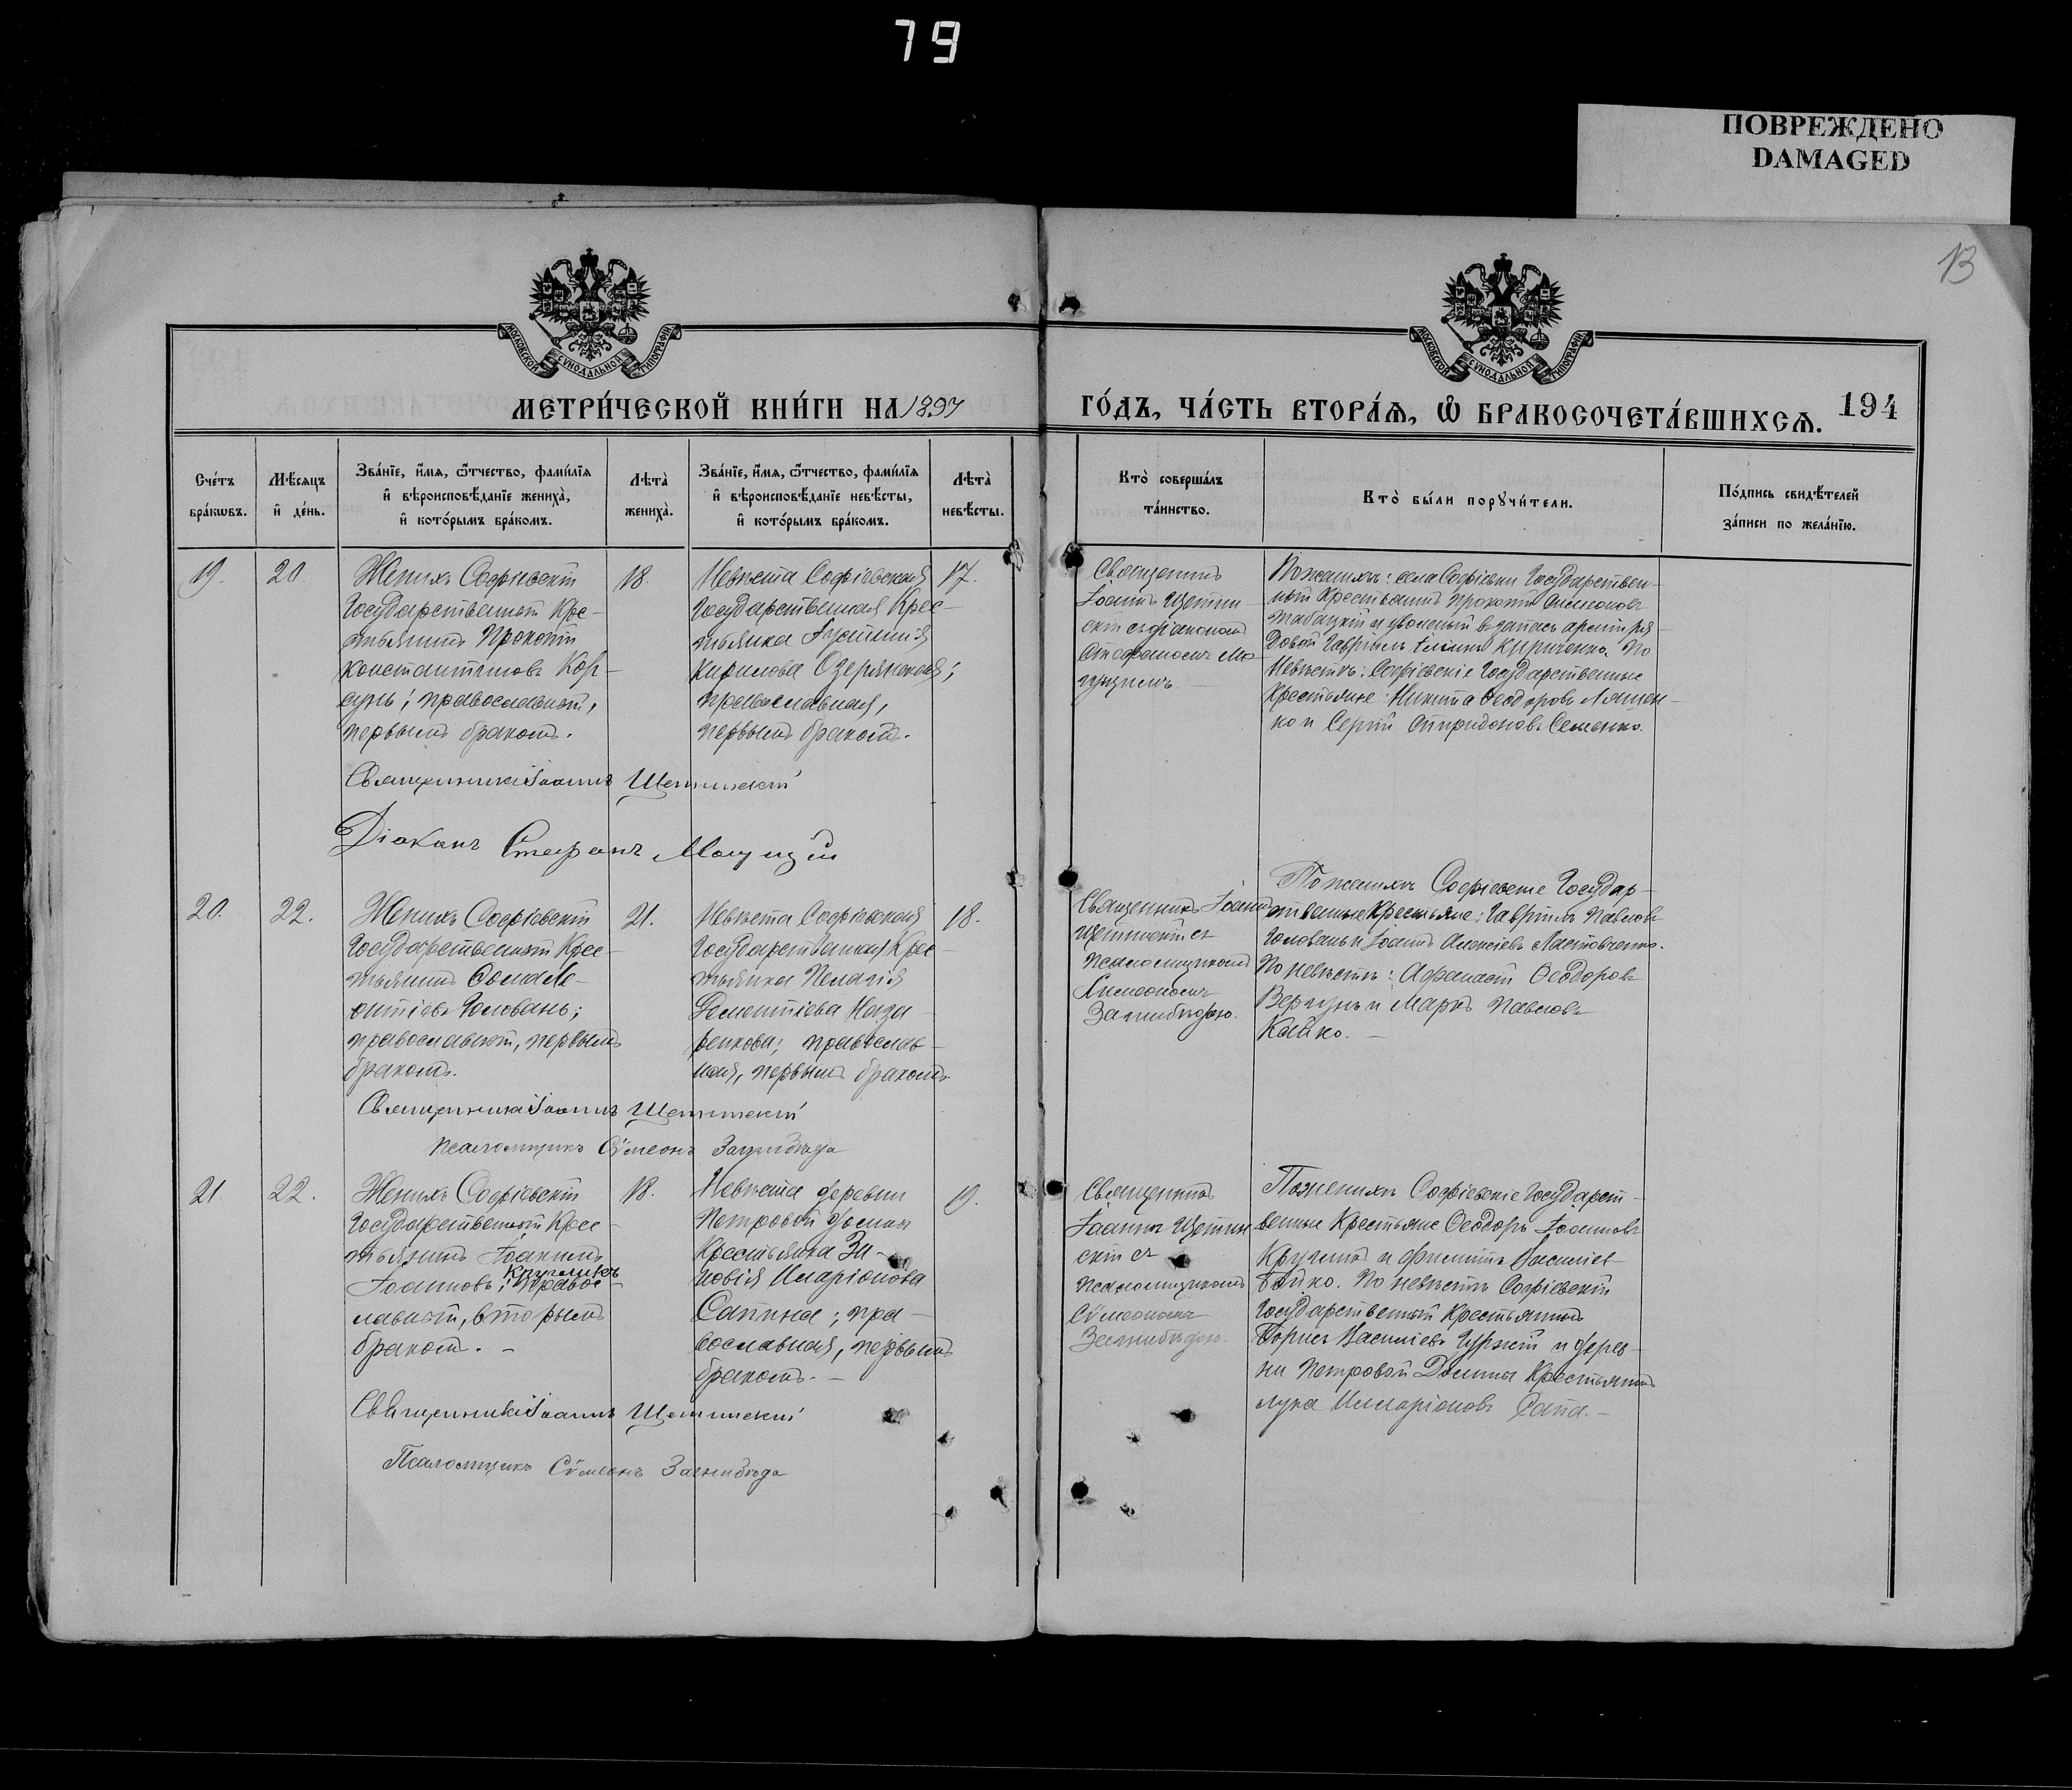 79
ПОВРЕЖДЕНО
DAMAGED
13
МОСКОВСКОЙ СѴНОДАЛЬНОЙ ТИПОГРАФІИ
МОСКОВСКОЙ СѴНОДАЛЬНОЙ ТИПОГРАФІИ
МЕТРИ́ЧЕСКОЙ КНИ́ГИ НА 1897
ГО́ДЪ, ЧА́СТЬ ВТОРА́Я, Ѽ БРАКОСОЧЕТА́ВШИХСЯ. 194
Сче́тъ бра́кѡвъ.
Мѣ́сяцъ и҆ де́нь.
Зва́нїе, и҆́мя, ѻ҆́тчество, фами́лїя
и҆ вѣроисповѣ́данїе жениха̀,
и҆ кото́рымъ бра́комъ.
Лѣта̀ жениха̀.
Зва́нїе, и҆́мя, ѻ҆́тчество, фами́лїя
и҆ вѣроисповѣ́данїе невѣ́сты,
и҆ кото́рымъ бра́комъ.
Лѣта̀ невѣ́сты.
Кто̀ соверша́лъ
та́инство.
Кто̀ бы́ли порꙋчи́тели.
По́дпись свидѣ́телей
за́писи по жела́нїю.
19.
20.
Женихъ Софіевскій
Государственный Крес-
тьянинъ Прокопій
Константиновъ Кор-
сунь; православный,
первымъ бракомъ.
18.
Невѣста Софіевская
Государственная Крес-
тьянка Іустинія
Кирилова Озерянская;
православная,
первымъ бракомъ.
17.
Священникъ
Іоаннъ Щетин-
скій съ діакономъ
Стефаномъ Мо-
гущимъ.
По женихѣ: села Софіевки Государствен-
ный Крестьянинъ Прокопій Симеоновъ
Табацкій и уволенный въ запасъ арміи ря-
довой Гавріилъ Кириченко. По
Невѣстѣ: Софіевскіе Государственные
Крестьяне: Никита Ѳеодоровъ Ляшен-
ко и Сергій Спиридоновъ Семенко.
Священникъ Іоаннъ Щетинскій
Діаконъ Стефанъ Могущій
20.
22.
Женихъ Софіевскій
Государственный Крес-
тьянинъ Ѳома Ле-
онтіевъ Головань;
православный, первымъ
бракомъ.
21.
Невѣста Софіевская
Государственная Крес-
тьянка Пелагія
Дементіева Наза-
ренкова; православ-
ная, первымъ бракомъ.
18.
Священникъ Іоаннъ
Щетинскій съ
Псаломщикомъ
Симеономъ
Загнибѣдою.
По женихѣ Софіевскіе Государ-
ственные Крестьяне: Гавріилъ Павловъ
Головань и Іоаннъ Алексіевъ Ластовченко.
По невѣстѣ: Аѳанасій Ѳеодоровъ
Вергунъ и Марко Павловъ
Кайко.
Священникъ Іоаннъ Щетинскій
Псаломщикъ Сѵмеонъ Загнибѣда
21
22.
Женихъ Софіевскій
Государственный Крес-
тьянинъ Іоакимъ
Кругликъ
Іоанновъ; правос-
лавный, вторымъ
бракомъ.
18.
Невѣста деревни
Петровой Долины
Крестьянка Зи-
новія Иларіонова
Сапина; пра-
вославная, первымъ
бракомъ.
19.
Священникъ
Іоаннъ Щетин
скій съ
Псаломщикомъ
Сѵмеономъ
Загнибѣдою.
По женихѣ Софіевскіе Государст-
венные Крестьяне Ѳеодоръ Іоанновъ
Кругликъ и Филиппъ Василіев
Бойко. По невѣстѣ Софіевскій
Государственный Крестьянинъ
Борисъ Василіевъ Гуржій и дерев-
ни Петровой Долины Крестьянинъ
Лука Илларіоновъ Сапа.
Священникъ Іоаннъ Щетинскій
Псаломщикъ Сѵмеонъ Загнибѣда